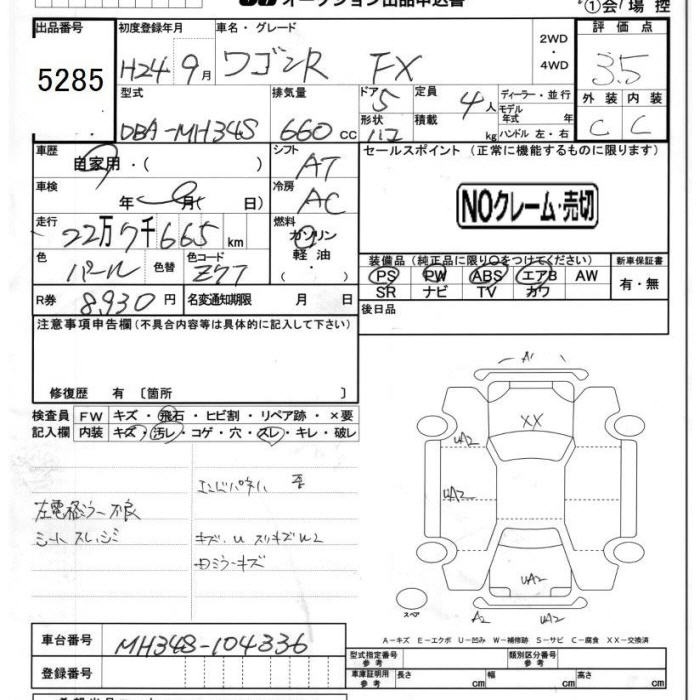 オークション出品申込書
①会場控
出品番号 初度登録年月 車名・グレード 2WD・4WD 評価点
5285 H24 9月 ワゴンR FX 3.5
型式 排気量 ドア 5 定員 4人 ディーラー・並行 外装 内装
DBA-MH34S 660cc 形状 積載 kg モデル年式 年 C C
ハンドル 左・右
車歴 自家用・( ) シフト AT セールスポイント(正常に機能するものに限ります)
車検 年 月( 日) 冷房 AC NOクレーム・売切
走行 22万7千665km 燃料 ガソリン 軽油・( )
色 パール 色替 色コード Z7T
装備品(純正品に限り○をつけてください) 新車保証書
PS PW ABS エアB AW 有・無
SR ナビ TV カワ
R券 8,930円 名変通知期限 月 日
後日品
注意事項申告欄(不具合内容等は具体的に記入して下さい)
修復歴 有〔箇所 〕
検査員 FW キズ・飛石・ヒビ割・リペア跡・×要
記入欄 内装 キズ・汚レ・コゲ・穴・スレ・キレ・破レ
左電格ミラー不良
シートスレ、シミ
キズ、U スリキズW2
ミラーキズ
A1
XX
UA2
UA2
UA2
A2 UA2
スペア
A-キズ E-エクボ U-凹み W-補修跡 S-サビ C-腐食 XX-交換済
車台番号 MH34S-104336
登録番号
型式指定番号 参考 類別区分番号 参考
車庫証明用 参考 長さ cm 幅 cm 高さ cm